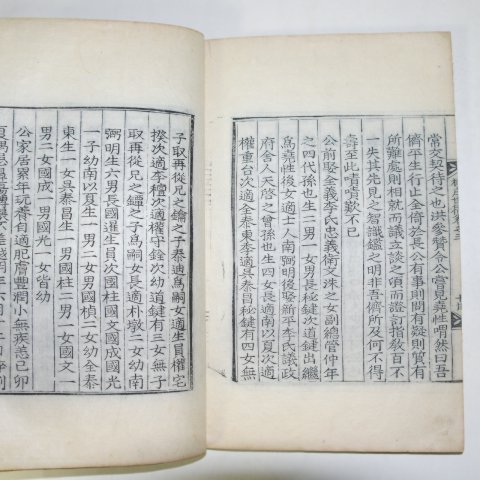 常交契待之也洪參贊令公嘗見堯性喟然曰吾
儕平生行止全倚於長公有事則問有疑則質有
所難處則相就而議立談之頃而證訂指教百不
一失其先見之智識鑑之明非吾儕所及何不得
壽至此嘖嘖歎不已
公前娶全義李氏忠義衛文洙之女副總管仲年
之四代孫也生二男一女男長極鍵次道鍵出繼
爲堯性後女適士人南弼明後娶新平李氏議政
府舍人天啓之曾孫也生四女長適南以夏次適
權重台次適全泰東季適吳泰昌極鍵有四女無
子取再從兄之鑰之子泰迪爲嗣女適生員權宅
揆次適李檀次適權守銓次幼道鍵有三女無子
取再從兄之鑰之子爲嗣女長適朴墩二女幼南
弼明生六男長國選生員次國柱國文國成國光
一子幼南以夏生一男二女男國楨二女幼全泰
東生一女吳泰昌生一男國柱二男一女國文一
男二女國成一男國光一女皆幼
公家居累年玩齋自適肥膚豐潤小無疾恙己卯